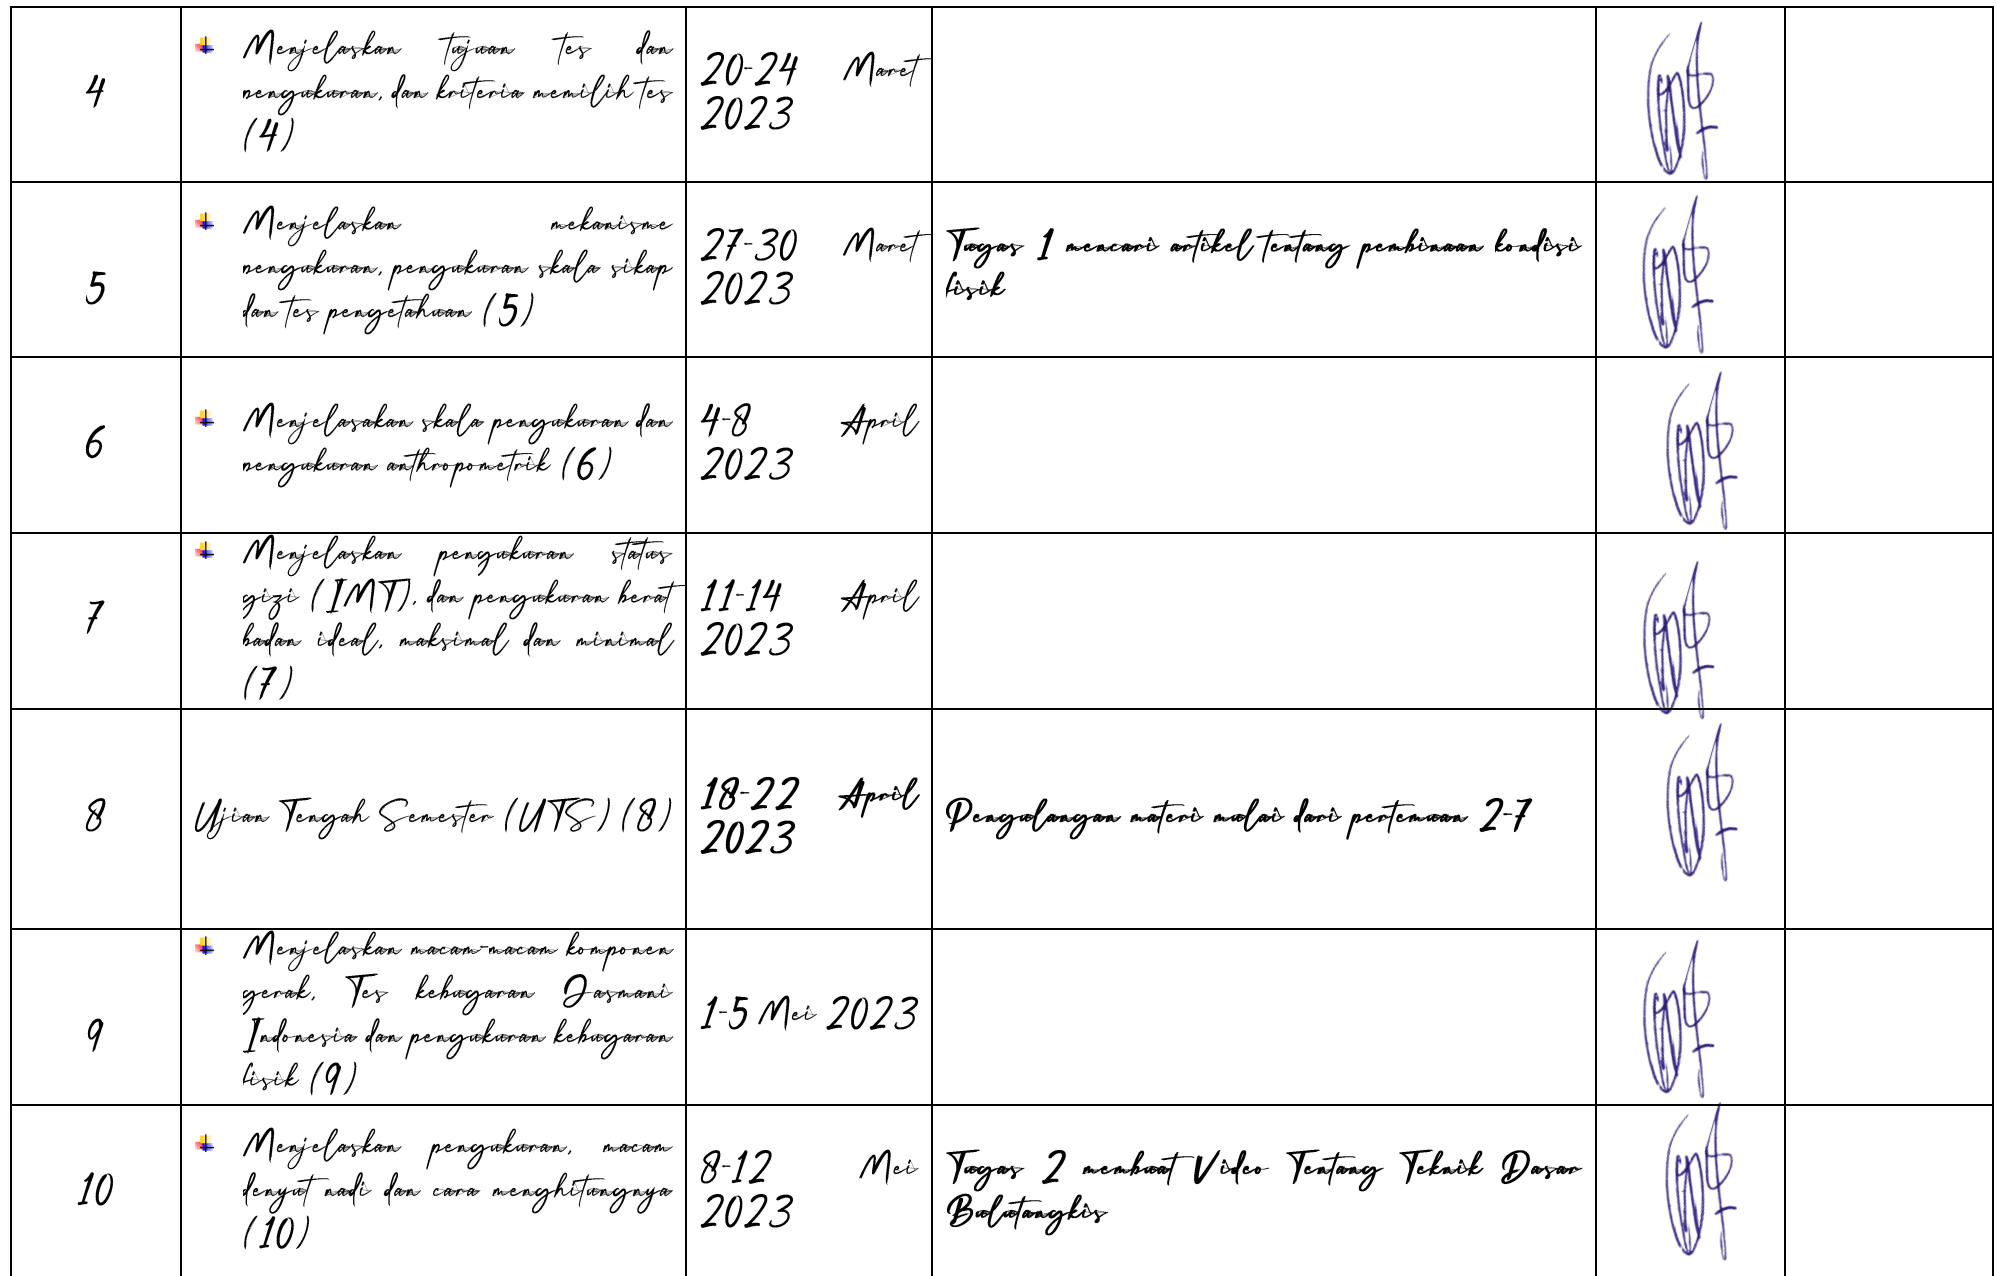 4
Menjelaskan tujuan tes dan
pengukuran, dan kriteria memilih tes
(4)
20-24 Maret
2023
5
Menjelaskan mekanisme
pengukuran, pengukuran skala sikap
dan tes pengetahuan (5)
27-30 Maret
2023
Tugas 1 mencari artikel tentang pembinaan kondisi
fisik
6
Menjelasakan skala pengukuran dan
pengukuran anthropometrik (6)
4-8 April
2023
7
Menjelaskan pengukuran status
gizi (IMT), dan pengukuran berat
badan ideal, maksimal dan minimal
(7)
11-14 April
2023
8
Ujian Tengah Semester (UTS) (8)
18-22 April
2023
Pengulangan materi mulai dari pertemuan 2-7
9
Menjelaskan macam-macam komponen
gerak, Tes kebugaran Jasmani
Indonesia dan pengukuran kebugaran
fisik (9)
1-5 Mei 2023
10
Menjelaskan pengukuran, macam
denyut nadi dan cara menghitungnya
(10)
8-12 Mei
2023
Tugas 2 membuat Video Tentang Teknik Dasar
Bulutangkis